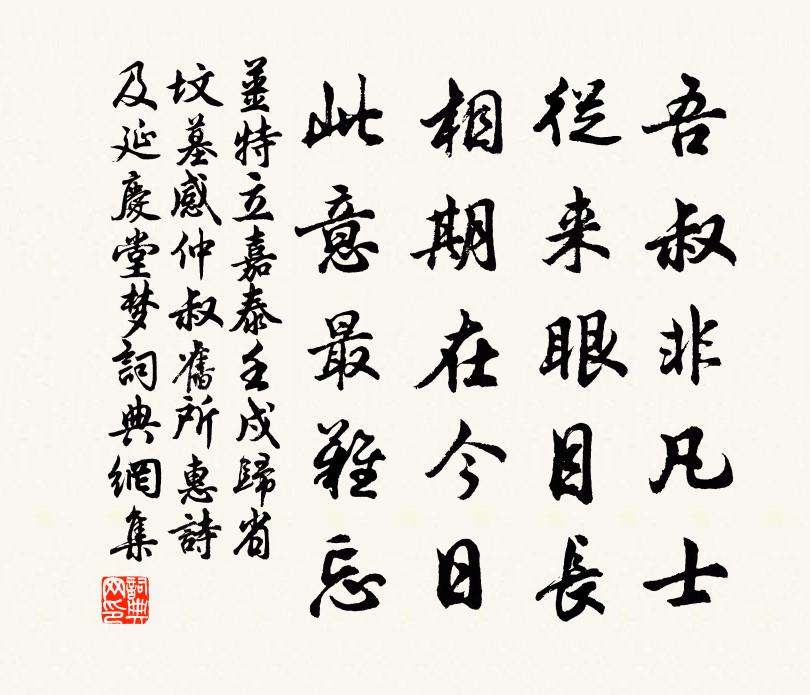 吾叔非凡士
從来眼目長
相期在今日
此意最難忘
姜特立嘉泰壬戌歸省
坟墓感仲叔舊所惠詩
及延慶堂梦詞典網集
詞典網印